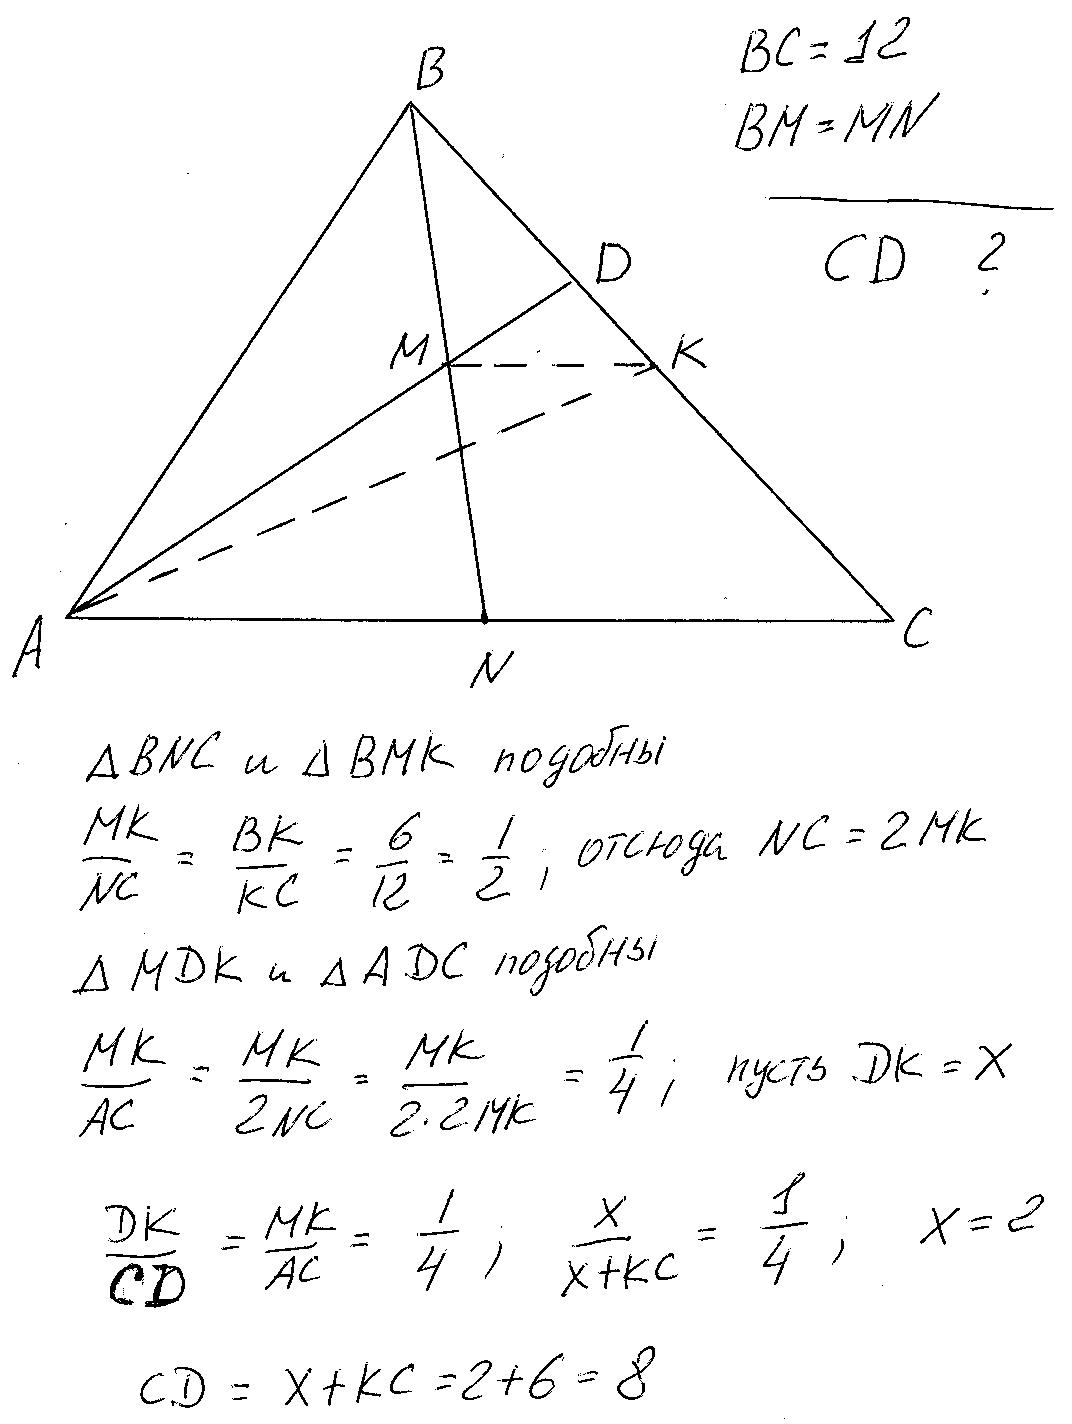 B
BC = 12
BM = MN
CD ?
D
M
K
A
N
C
Δ BNC и Δ BMK подобны
MK/NC = BK/KC = 6/12 = 1/2 ; отсюда NC = 2MK
Δ MDK и Δ ADC подобны
MK/AC = MK/2NC = MK/2·2MK = 1/4 ; пусть DK = X
DK/CD = MK/AC = 1/4 ; X/X+KC = 1/4 ; X = 2
CD = X+KC = 2+6 = 8